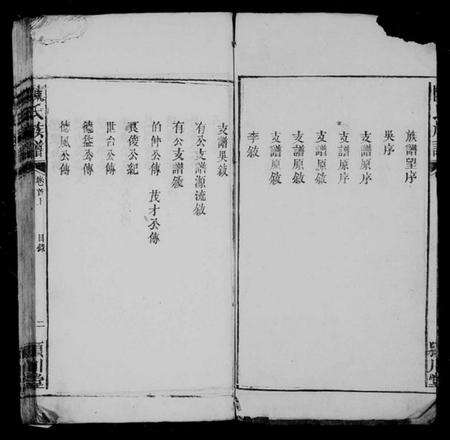 族譜望序
吳序
支譜原序
支譜原序
支譜原敘
支譜原敘
李敘
支譜吳敘
有公支譜源流敘
有公支譜敘
伯仲公傳 茂才公傳
公紀
世台公傳
德益公傳
德風公傳
氏族譜
卷首上
目錄
二
潁川堂